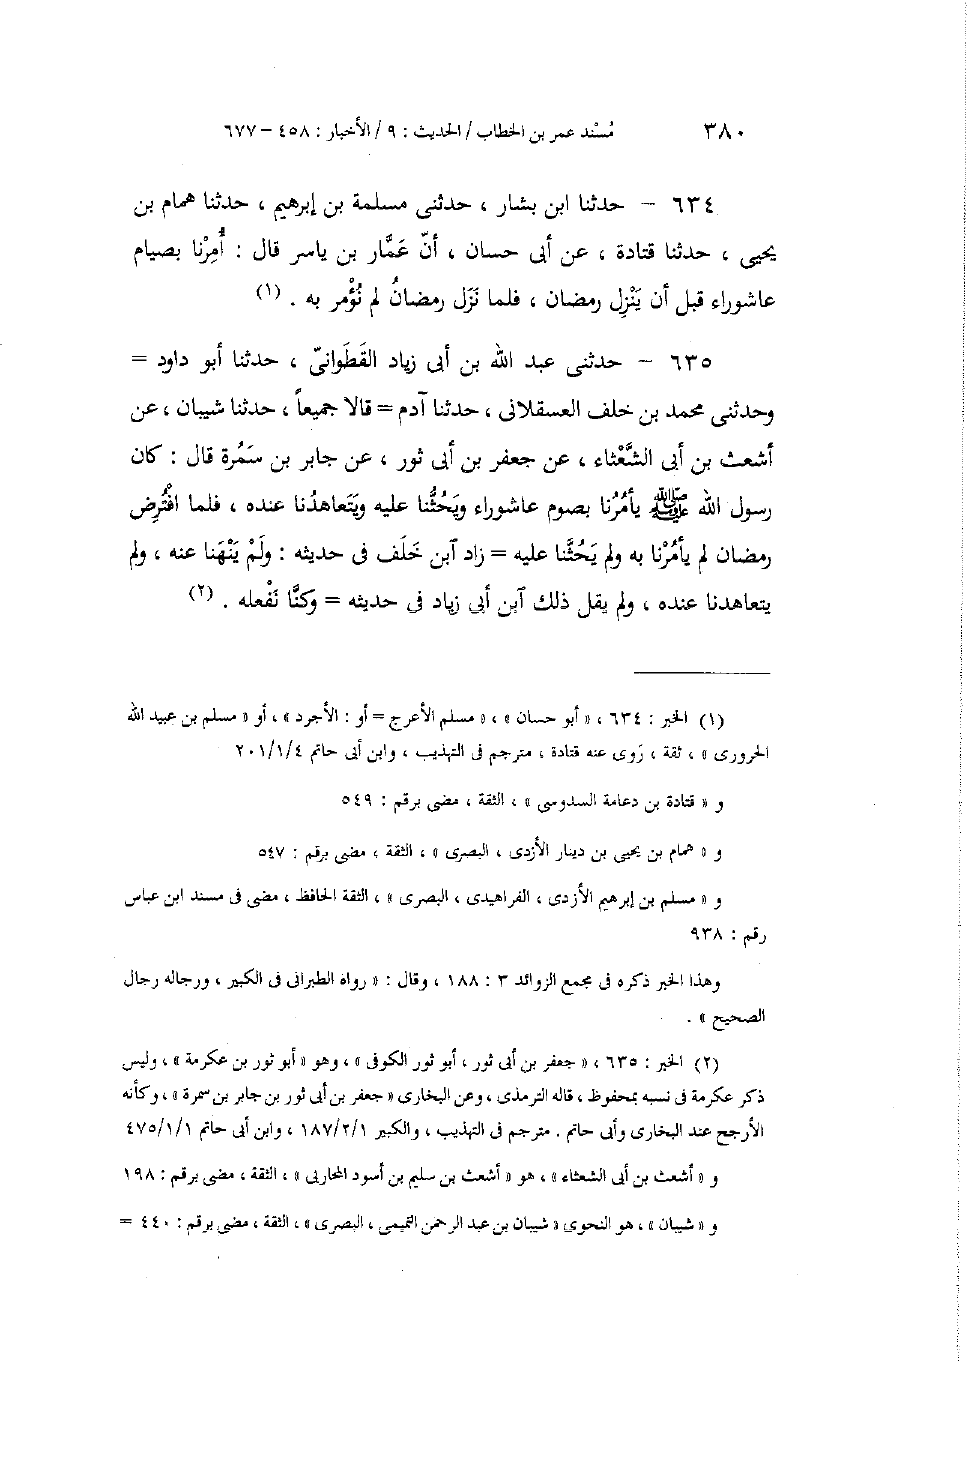 ٣٨٠ مُسْند عمر بن الخطاب / الحديث : ٩ / الأخبار : ٤٥٨ – ٦٧٧
٦٣٤ – حدثنا ابن بشار ، حدثنى مسلمة بن إبرهيم ، حدثنا همام بن
يحيى ، حدثنا قتادة ، عن أبى حسان ، أنّ عَمَّار بن ياسر قال : أُمِرْنا بصيام
عاشوراء قبل أن يَنْزِل رمضان ، فلما نَزَل رمضانُ لم نُؤْمر به . (١)
٦٣٥ – حدثنى عبد الله بن أبى زياد القَطَوانىّ ، حدثنا أبو داود =
وحدثنى محمد بن خلف العسقلانى ، حدثنا آدم = قالا جميعاً ، حدثنا شيبان ، عن
أشعث بن أبى الشَّعْثاء ، عن جعفر بن أبى ثور ، عن جابر بن سَمُرة قال : كان
رسول الله ﷺ يأمُرُنا بصوم عاشوراء ويَحُثُّنا عليه ويَتَعاهدُنا عنده ، فلما افْتُرِض
رمضان لم يأمُرْنا به ولم يَحُثَّنا عليه = زاد آبن خَلَف فى حديثه : ولَمْ يَنْهَنا عنه ، ولم
يتعاهدنا عنده ، ولم يقل ذلك آبن أبى زياد فى حديثه = وكنَّا نَفْعله . (٢)
(١) الخبر : ٦٣٤ ، « أبو حسان » ، « مسلم الأعرج = أو : الأجرد » ، أو « مسلم بن عبيد الله
الحرورى » ، ثقة ، رَوى عنه قتادة ، مترجم فى التهذيب ، وابن أبى حاتم ٤/١/٢٠١
و « قتادة بن دعامة السدوسى » ، الثقة ، مضى برقم : ٥٤٩
و « همام بن يحيى بن دينار الأزدى ، البصرى » ، الثقة ، مضى برقم : ٥٤٧
و « مسلم بن إبرهيم الأزدى ، الفراهيدى ، البصرى » ، الثقة الحافظ ، مضى فى مسند ابن عباس
رقم : ٩٣٨
وهذا الخبر ذكره فى مجمع الزوائد ٣ : ١٨٨ ، وقال : « رواه الطبرانى فى الكبير ، ورجاله رجال
الصحيح » .
(٢) الخبر : ٦٣٥ ، « جعفر بن أبى ثور ، أبو ثور الكوفى » ، وهو « أبو ثور بن عكرمة » ، وليس
ذكر عكرمة فى نسبه بمحفوظ ، قاله الترمذى ، وعن البخارى « جعفر بن أبى ثور بن جابر بن سمرة » ، وكأنه
الأرجح عند البخارى وأبى حاتم . مترجم فى التهذيب ، والكبير ١/٢/١٨٧ ، وابن أبى حاتم ١/١/٤٧٥
و « أشعث بن أبى الشعثاء » ، هو « أشعث بن سليم بن أسود المحاربى » ، الثقة ، مضى برقم : ١٩٨
و « شيبان » ، هو النحوى « شيبان بن عبد الرحمن التميمى ، البصرى » ، الثقة ، مضى برقم : ٤٤٠ =